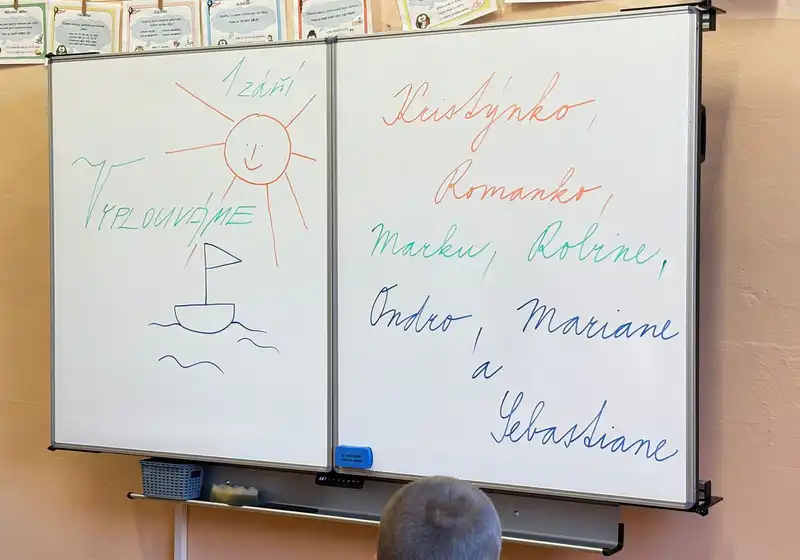 1 září
Vyplouváme
Kristýnko,
Romanko,
Marku, Robine,
Ondro, Mariane
a
Sebastiane